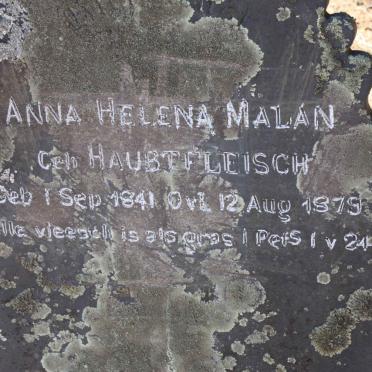 ANNA HELENA MALAN
Geb HAUBTFLEISCH
Geb 1 Sep 1841 Ovl 12 Aug 1879
Alle vleesch is als gras 1 PetS 1 v 24